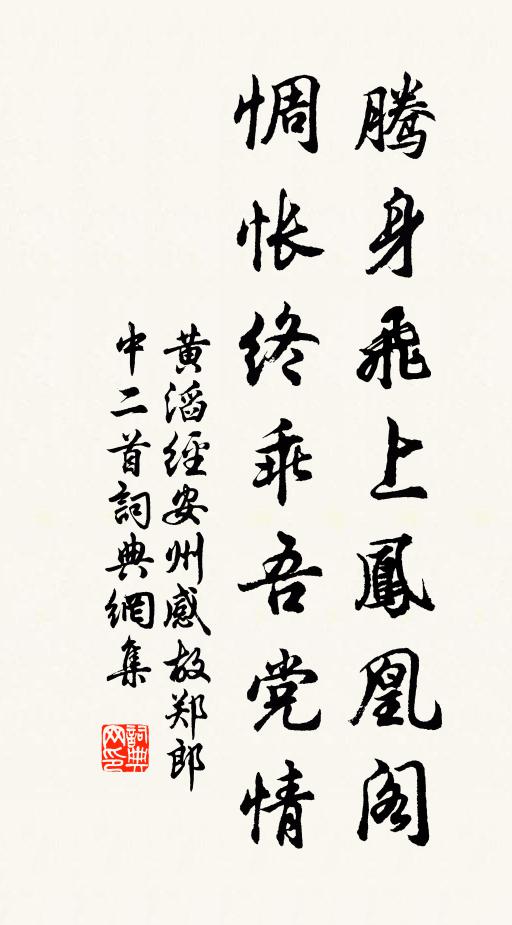 腾身飛上鳳凰阁
惆怅终乖吾党情
黄滔經安州感故郑郎
中二首詞典網集
詞典網印